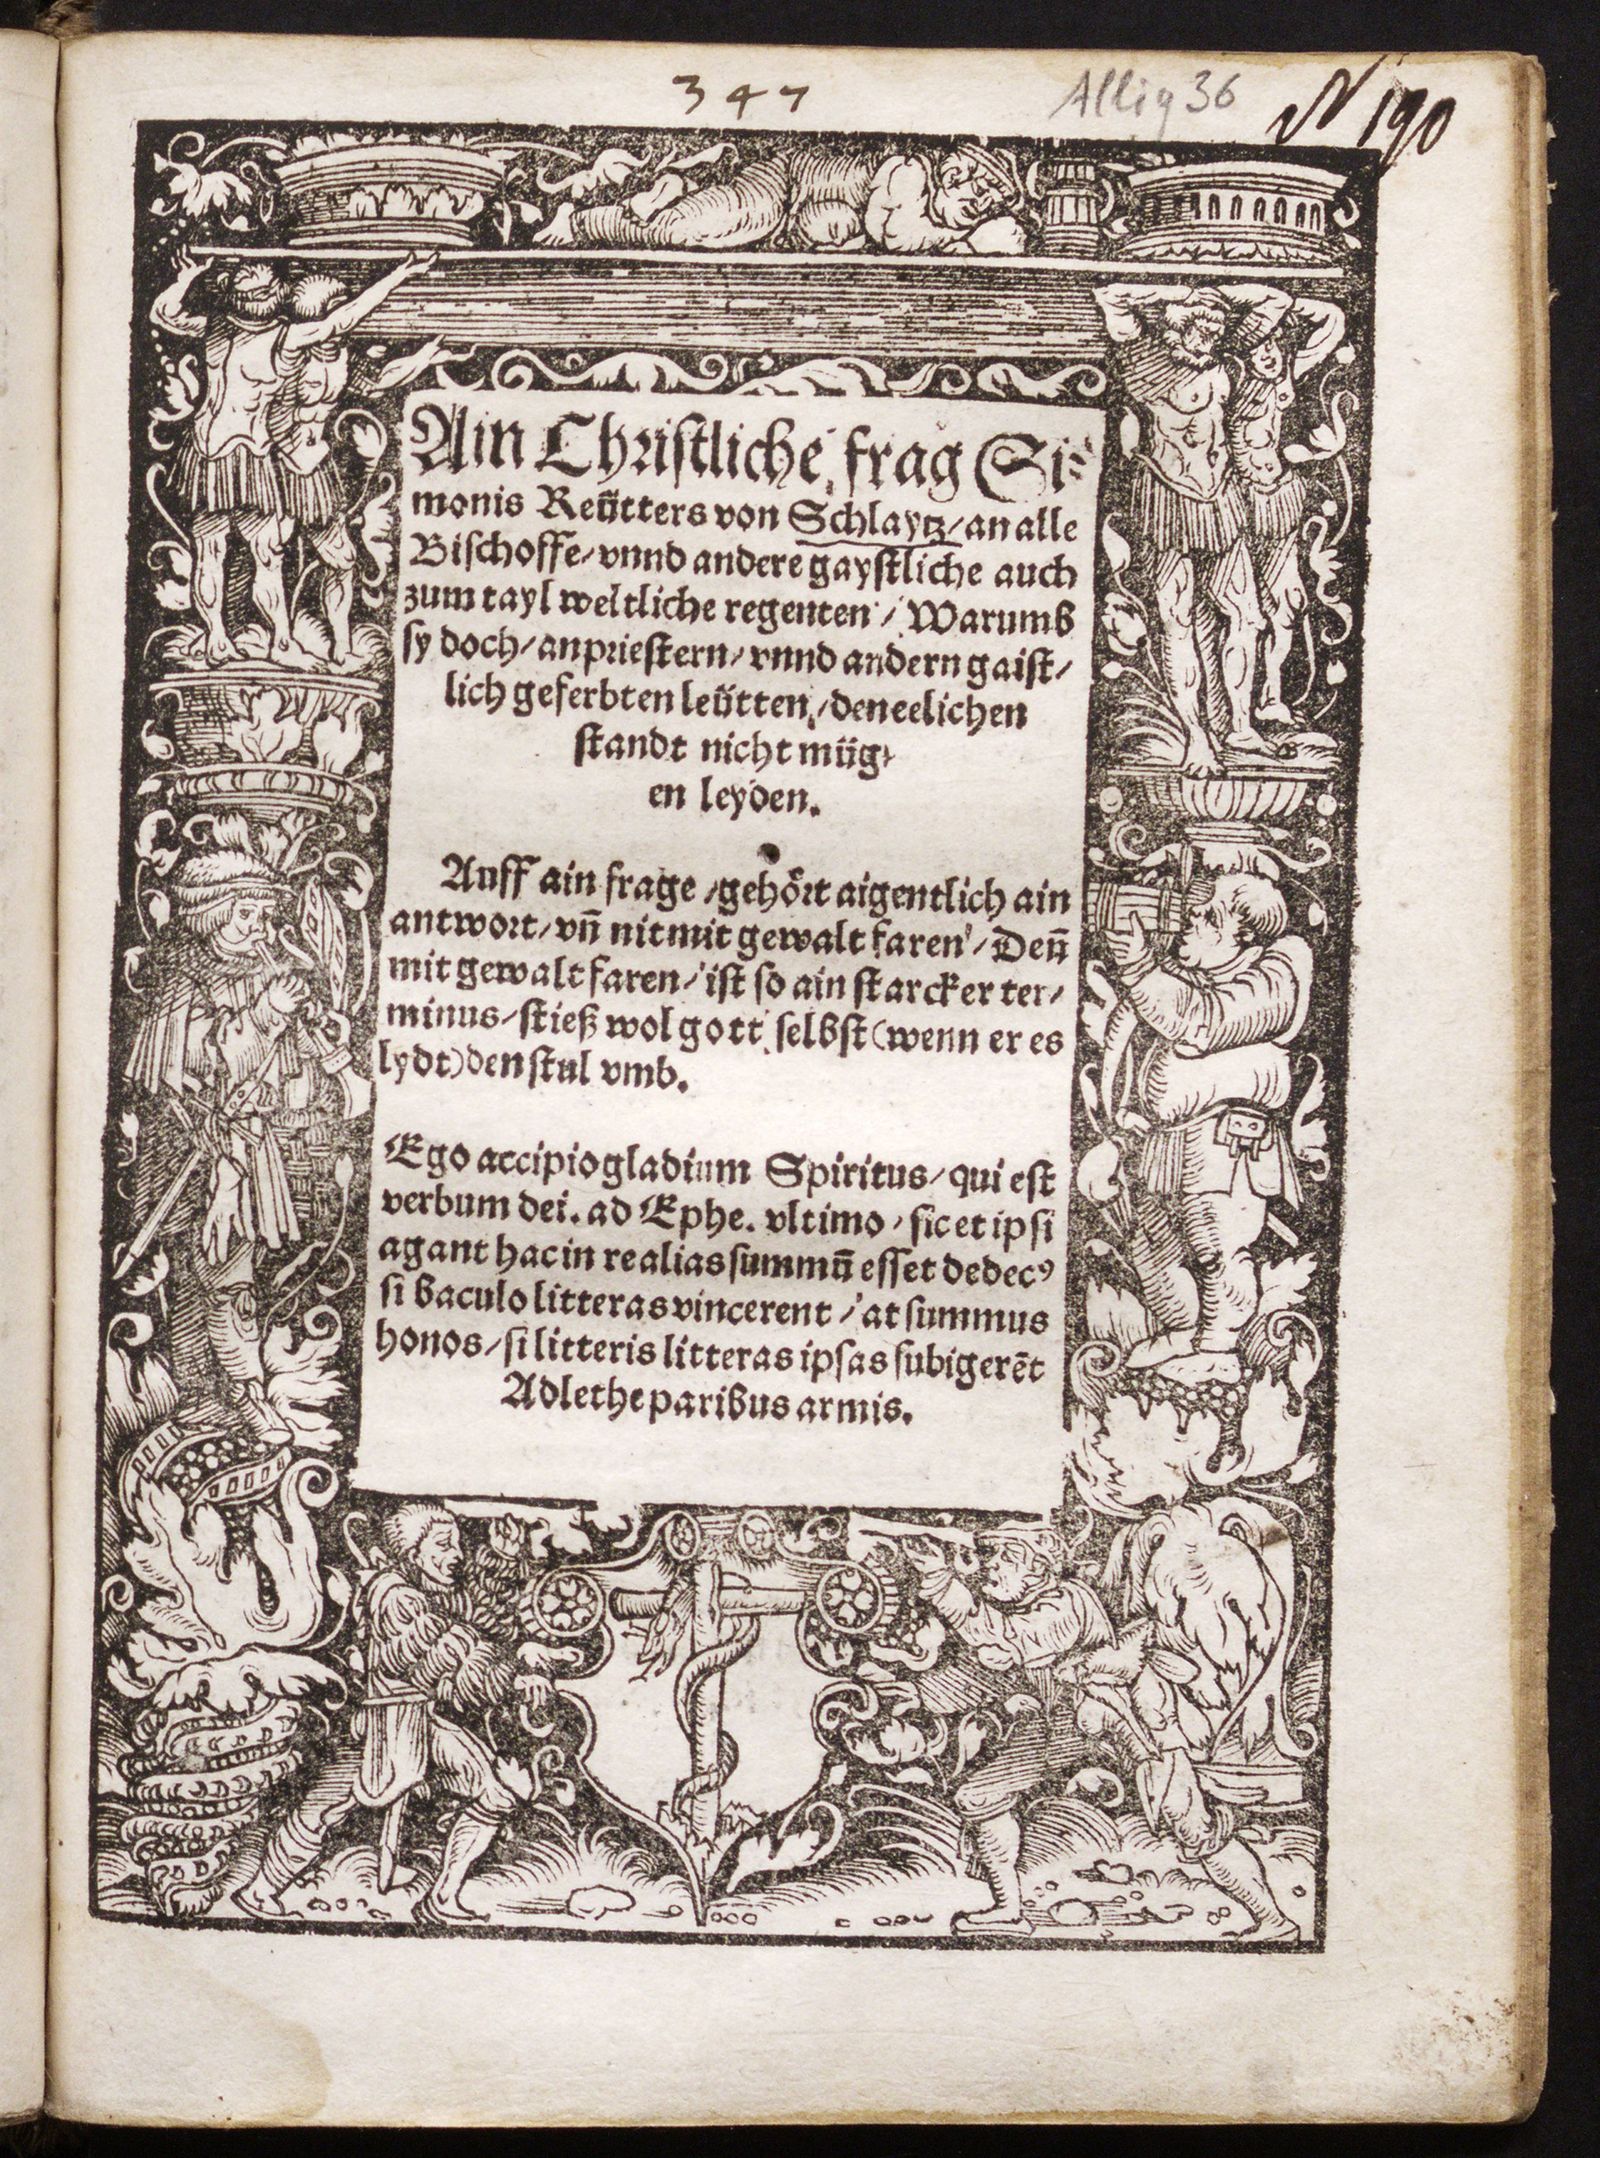 347
Allig 36
N 190
Ain Christliche frag Si⸗
monis Reütters von Schlaytz/ an alle
Bischoffe/ vnnd andere gaystliche auch
zum tayl weltliche regenten/ Warumb
sy doch/ an priestern/ vnnd andern gaist/
lich geferbten leütten/ den eelichen
standt nicht müg/
en leyden.
Auff ain frage/ gehört aigentlich ain
antwort/ vn̄ nit mit gewalt faren/ Den̄
mit gewalt faren/ ist so ain starcker ter/
minus/ stieß wol gott selbst (wenn er es
lydt) den stul vmb.
Ego accipio gladium Spiritus/ qui est
verbum dei. ad Ephe. vltimo/ sic et ipsi
agant hac in re alias summū esset dedecꝰ
si baculo litteras vincerent/ at summus
honos/ si litteris litteras ipsas subigerēt
Adlethe paribus armis.